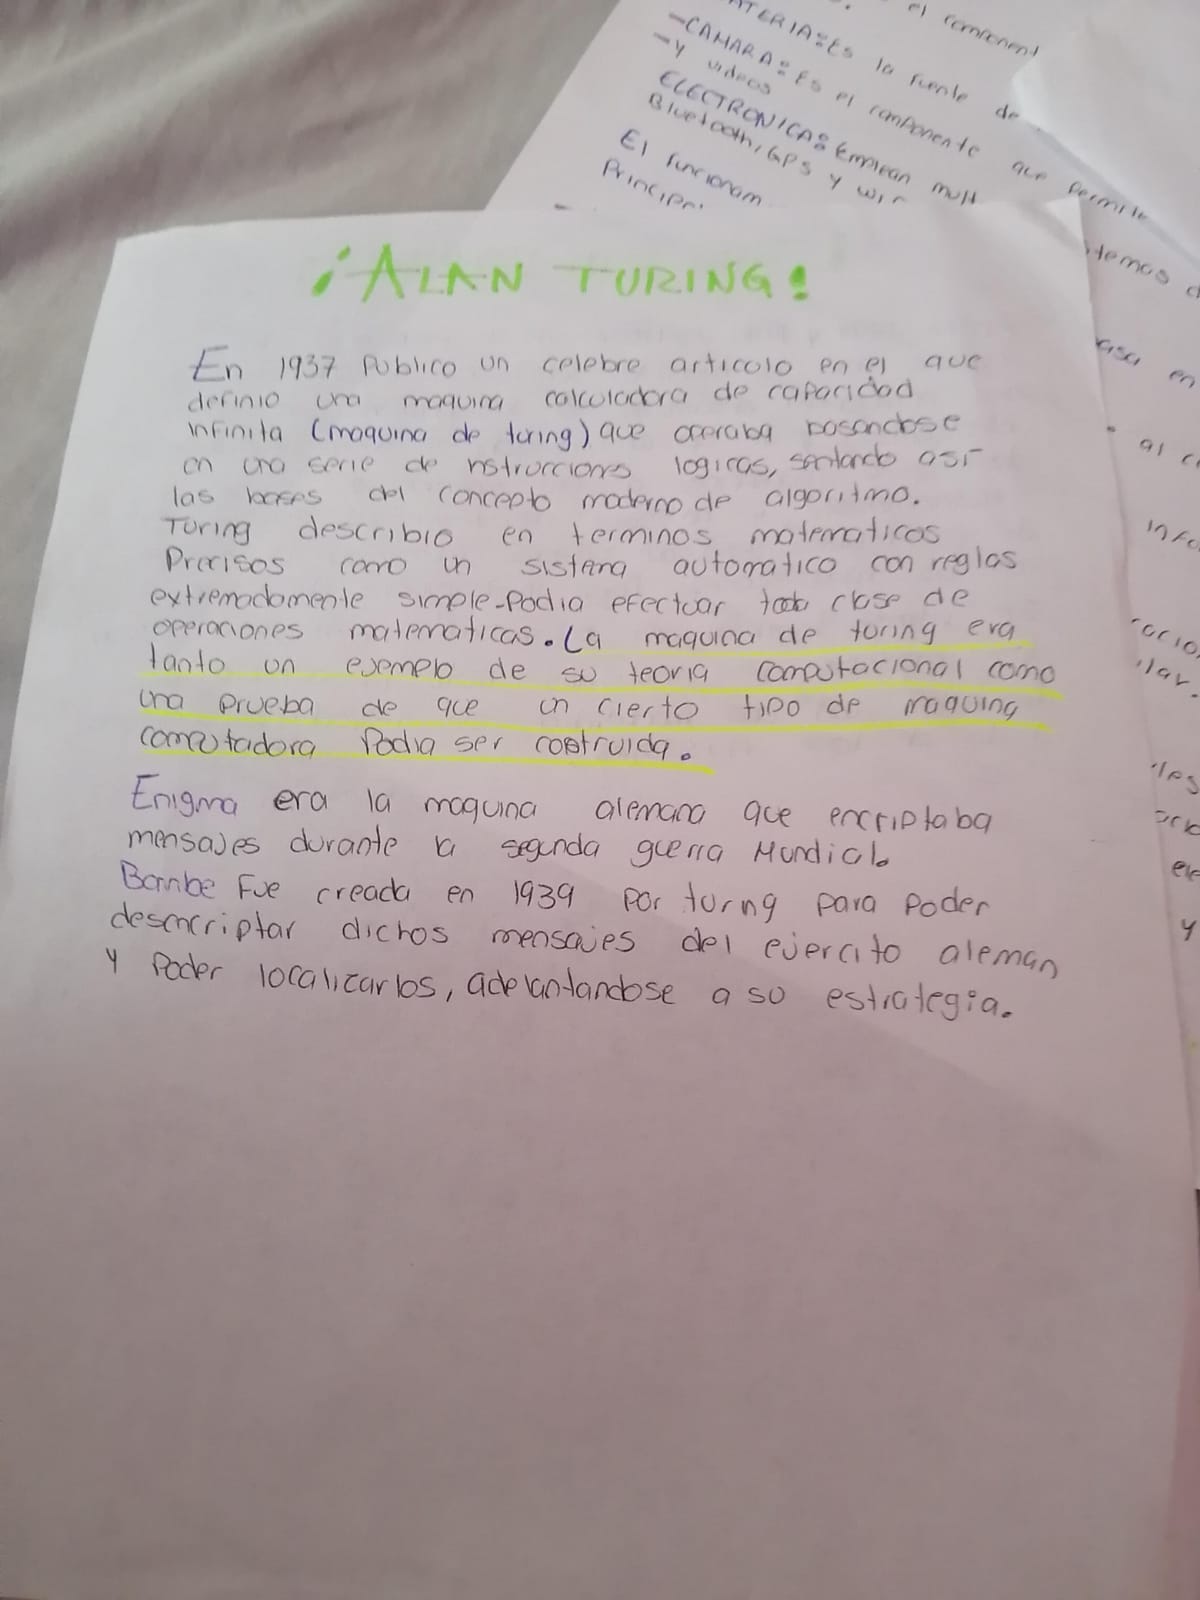 el component
ATERIA: Es la fuente de
-CAMARA: Es el componente que permite
-y videos
ELECTRONICAS Emplean mult
Bluetooth, GPS y wif
El funcionam
Princip
temas d
asa en
al c
info
ocio
lar.
les
ele
y
¡ALAN TURING!
En 1937 Publico un celebre articulo en el que
definio una maquina calculadora de capacidad
infinita (maquina de turing) que operaba basandose
en una serie de instrucciones logicas, sentando asi
las bases del concepto moderno de algoritmo.
Turing describio en terminos matematicos
Precisos como un sistema automatico con reglas
extremadamente simple-Podia efectuar toda clase de
operaciones matematicas. La maquina de turing era
tanto un ejemplo de su teoria computacional como
una prueba de que un cierto tipo de maquina
computadora Podia ser costruida.
Enigma era la maquina alemana que encriptaba
mensajes durante la segunda guerra Mundial.
Bombe Fue creada en 1939 por turing para poder
desencriptar dichos mensajes del ejercito aleman
y Poder localizarlos, adelantandose a su estrategia.